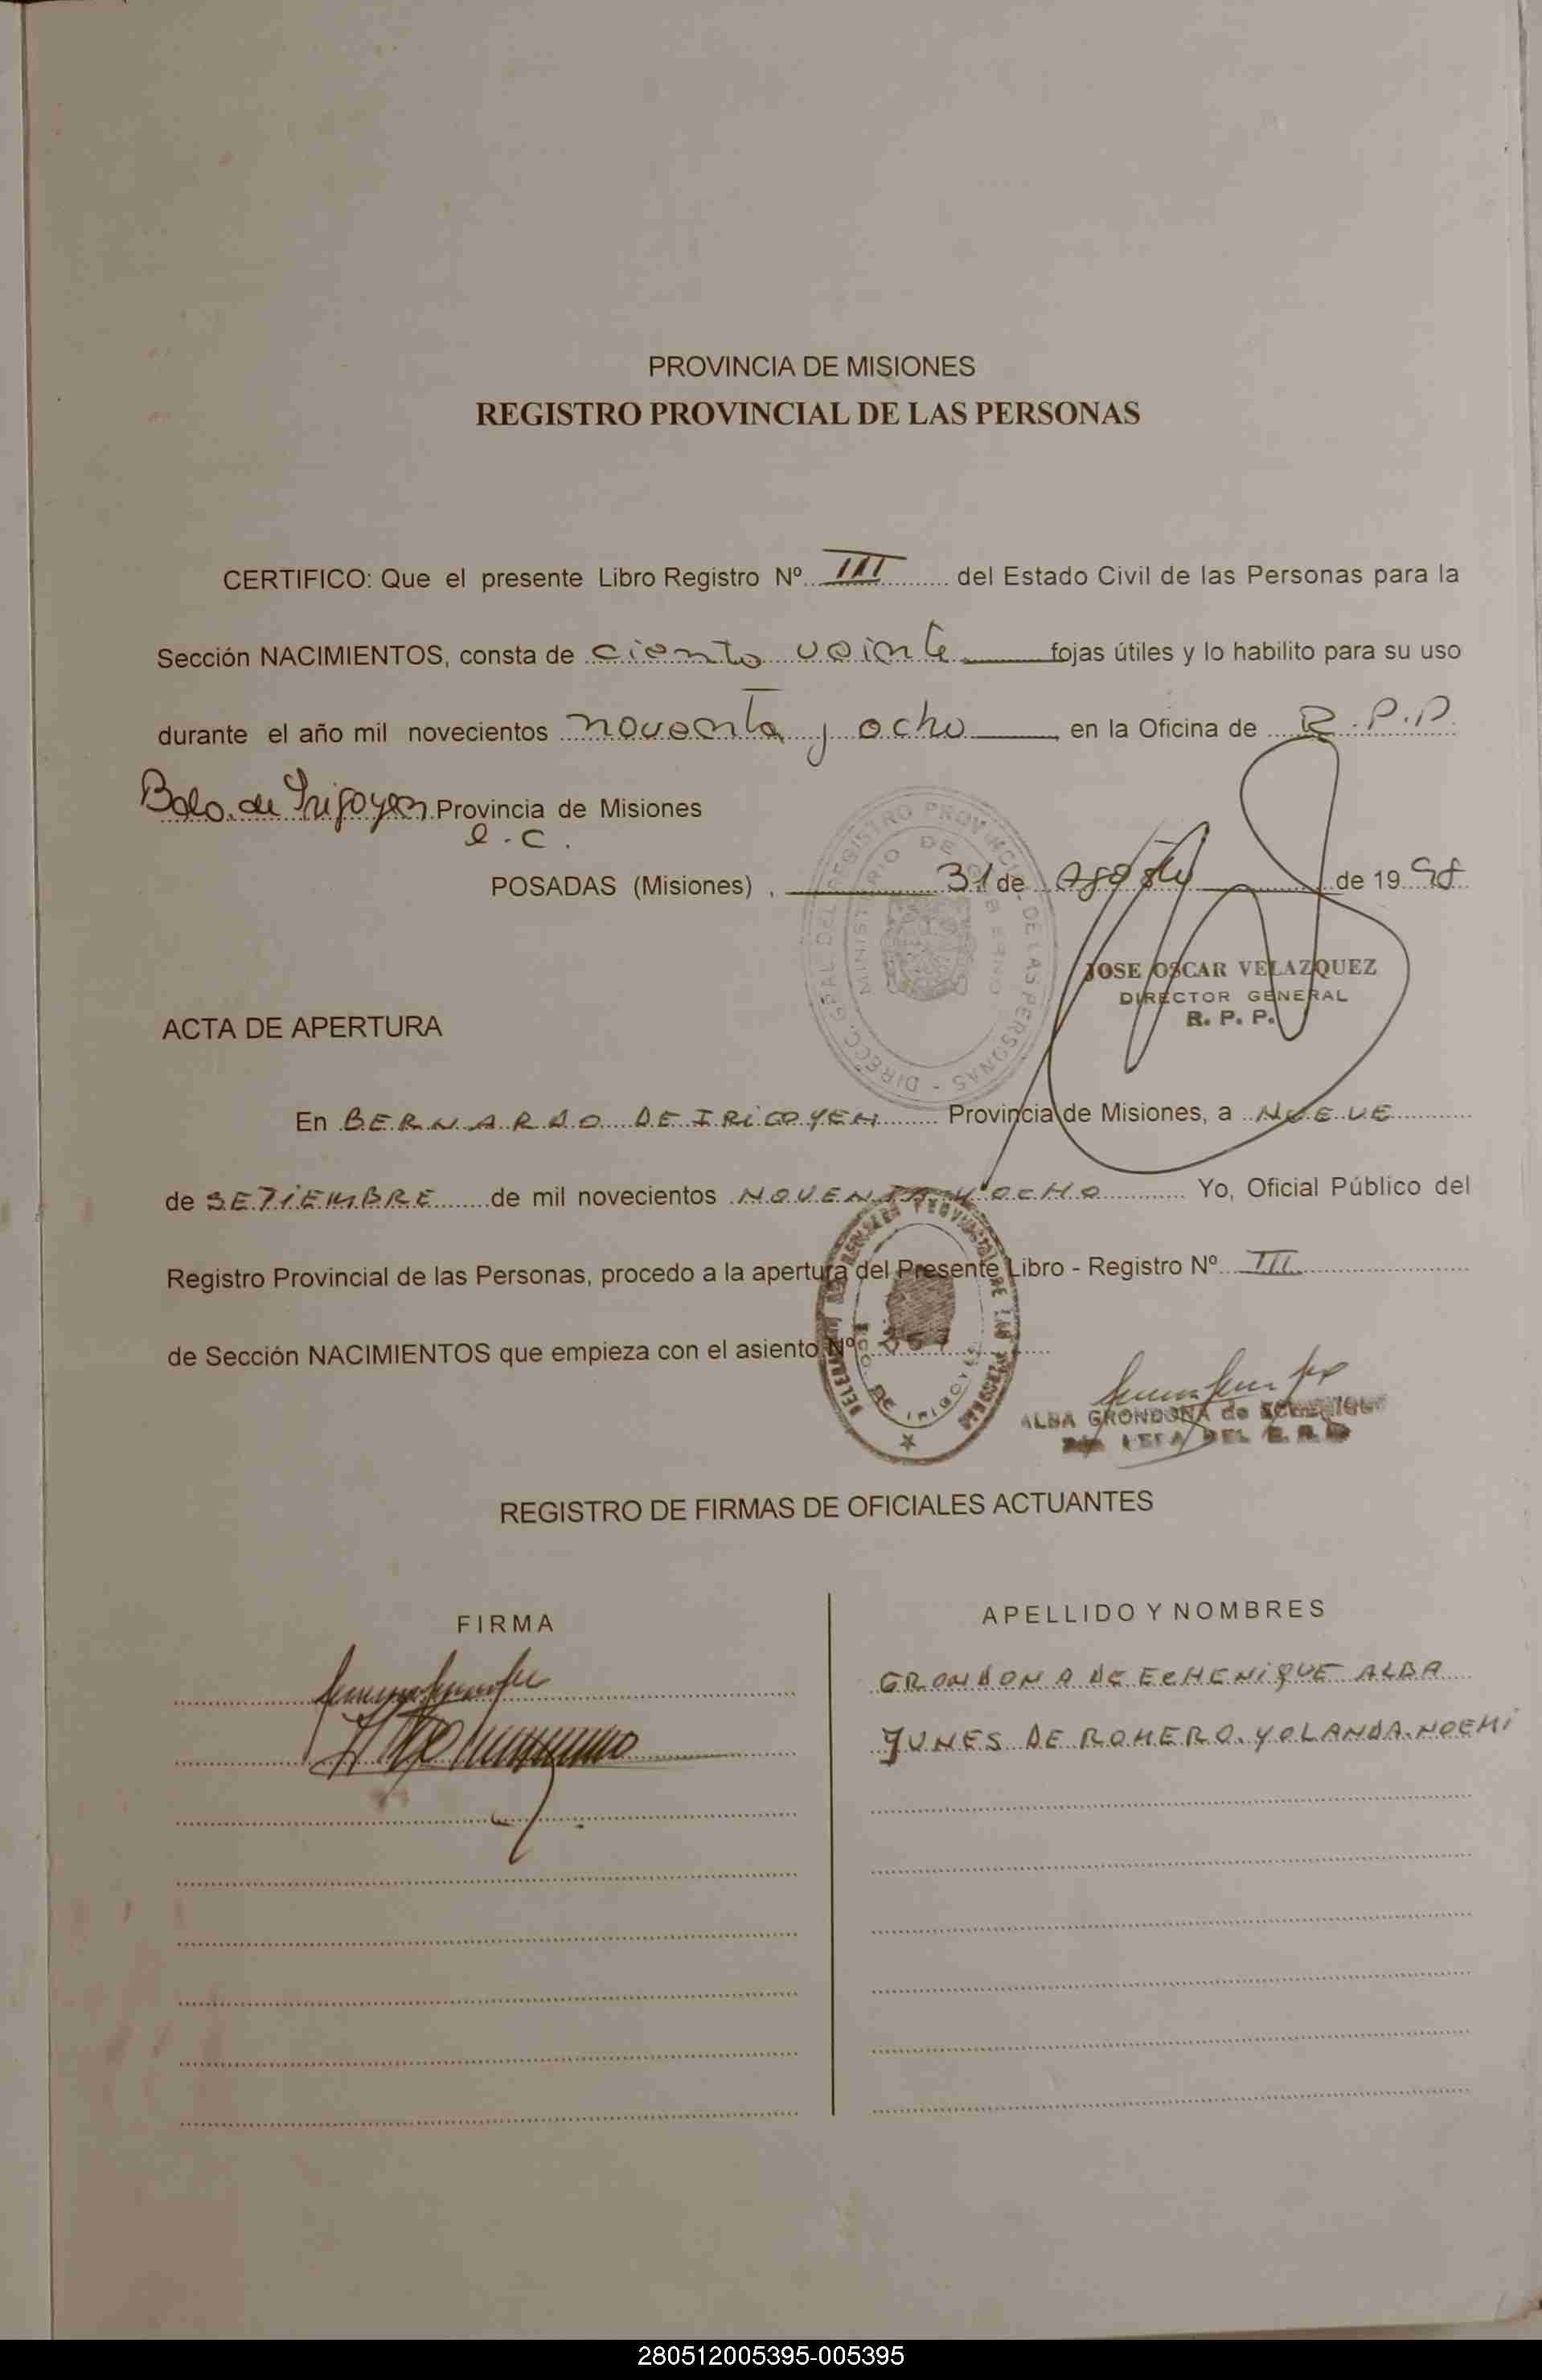 PROVINCIA DE MISIONES
REGISTRO PROVINCIAL DE LAS PERSONAS
CERTIFICO: Que el presente Libro Registro Nº III del Estado Civil de las Personas para la
Sección NACIMIENTOS, consta de ciento veinte fojas útiles y lo habilito para su uso
durante el año mil novecientos noventa y ocho en la Oficina de R.P.P.
Bdo. de Irigoyen Provincia de Misiones
POSADAS (Misiones) , 31 de Agosto de 1998
JOSE OSCAR VELAZQUEZ
DIRECTOR GENERAL
R. P. P.
DIRECC. GRAL. DEL REGISTRO PROVINCIAL DE LAS PERSONAS -
MINISTERIO DE GOBIERNO
ACTA DE APERTURA
En BERNARDO DE IRIGOYEN Provincia de Misiones, a NUEVE
de SETIEMBRE de mil novecientos NOVENTA Y OCHO Yo, Oficial Público del
Registro Provincial de las Personas, procedo a la apertura del Presente Libro - Registro Nº III
de Sección NACIMIENTOS que empieza con el asiento Nº
ALBA GRONDONA de
REGISTRO DE FIRMAS DE OFICIALES ACTUANTES
FIRMA
APELLIDO Y NOMBRES
GRONDONA DE ECHENIQUE ALBA
JUNES DE ROMERO. YOLANDA. NOEMI
280512005395-005395